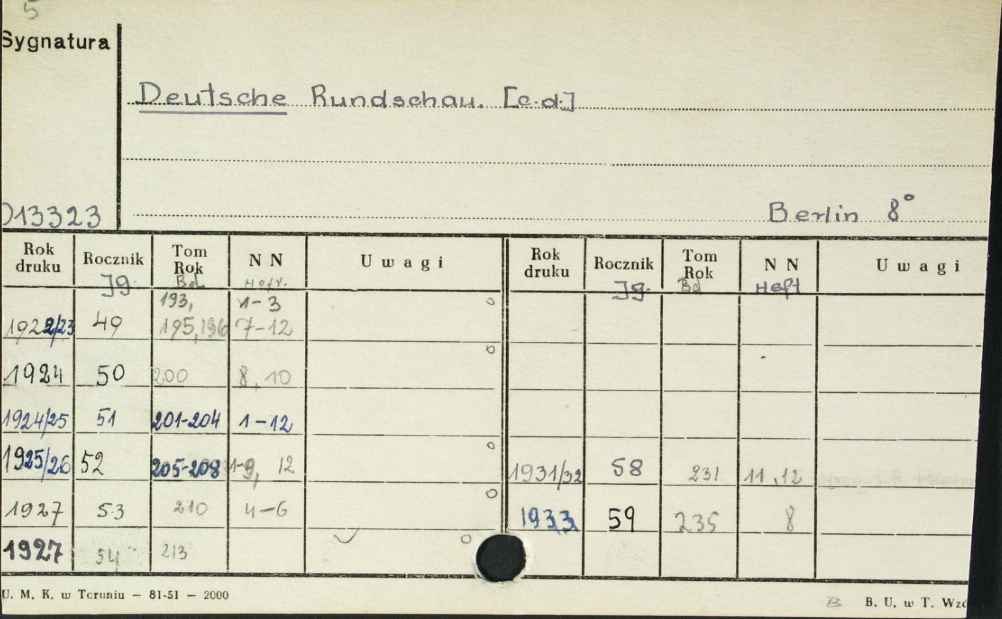 5
Sygnatura
Deutsche Rundschau. [c.d.]
013323
Berlin 8°
Rok druku Rocznik Tom Rok N N U w a g i Rok druku Rocznik Tom Rok N N U w a g i
Jg. Bd Heft. Jg. Bd Heft
193, 1-3
1922/23 49 195,196 7-12
1924 50 200 8, 10
1924/25 51 201-204 1-12
1925/26 52 205-208 1-9, 12 1931/32 58 231 11,12
1927 53 210 4-6 1933 59 235 8
1927 54 213
U. M. K. w Toruniu — 81-51 — 2000
B B. U. w T.